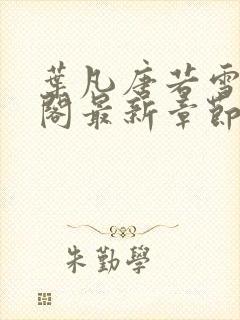 葉凡唐若雪
閣最新章節
朱勤學